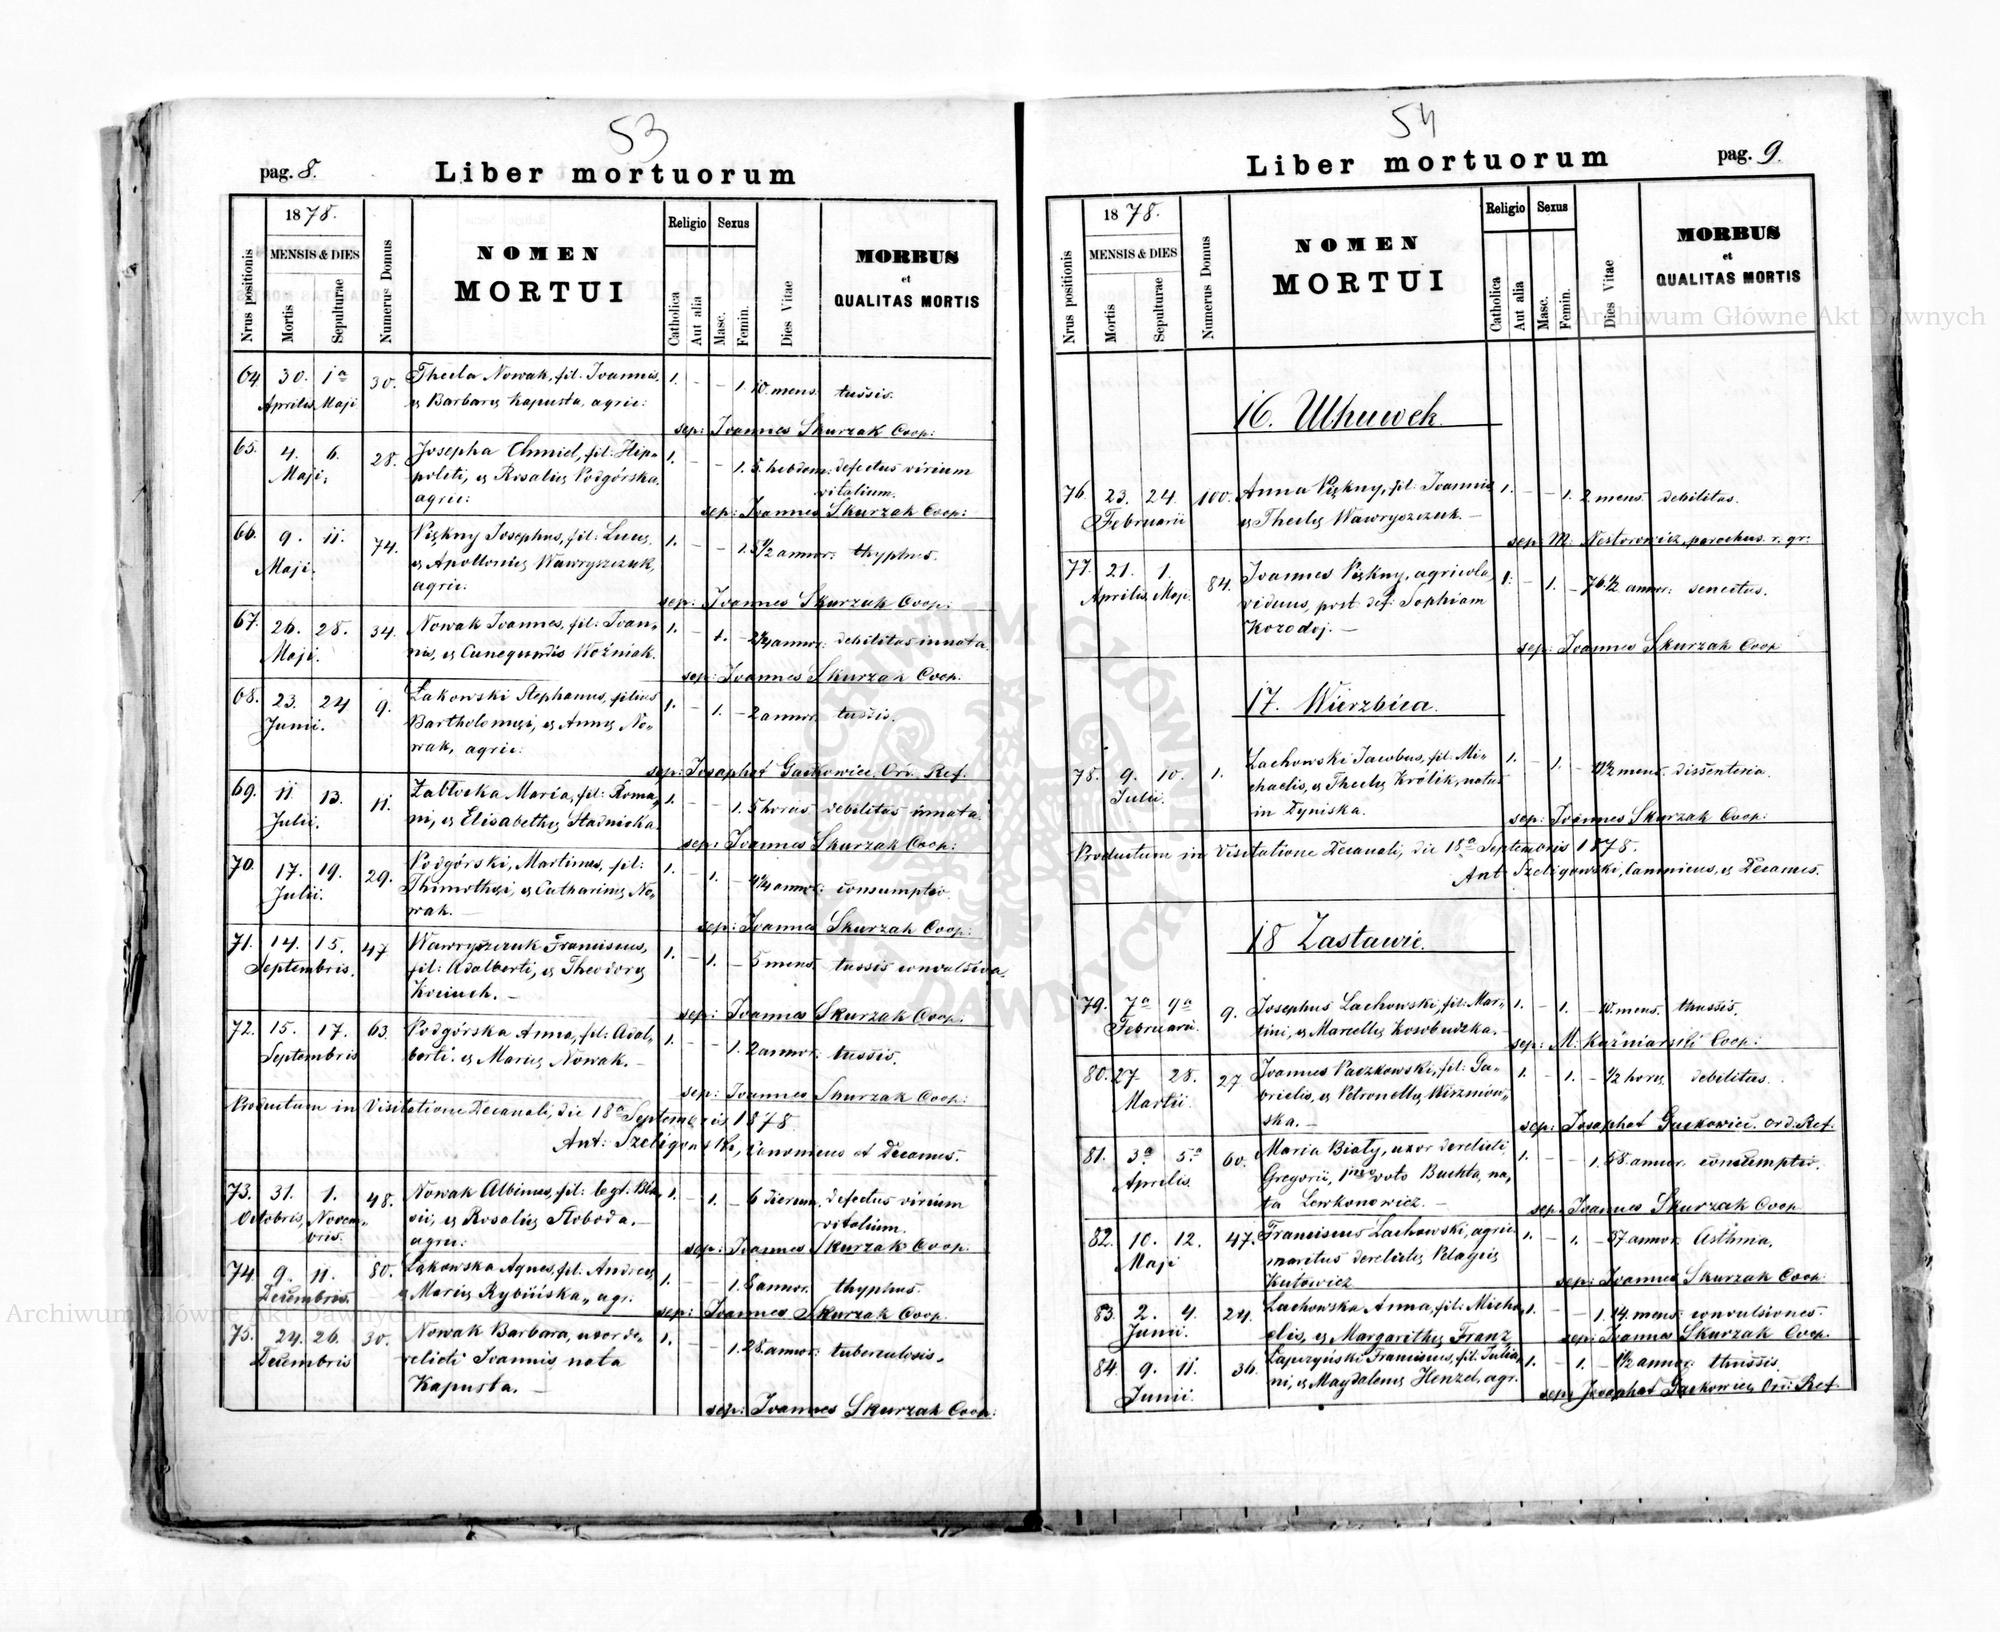 53
pag. 8. Liber mortuorum
Nrus positionis
1878.
MENSIS & DIES
Mortis
Sepulturae
Numerus Domus
NOMEN
MORTUI
Religio
Catholica
Aut alia
Sexus
Masc.
Femin.
Dies Vitae
MORBUS
et
QUALITAS MORTIS
64 30. 1a 30. Thecla Nowak, fil: Joannis, 1. - - 1. 10 mens. tussis.
Aprilis Maji & Barbarae Kapusta, agric:
sep: Joannes Skurzak Coop:
65. 4. 6. 28. Josepha Chmiel, fil: Hip= 1. - - 1. 5. hebdom: defectus virium
Maji. politi, & Rosaliae Podgórska, vitalium.
agric: sep: Joannes Skurzak Coop:
66. 9. 11. 74. Piękny Josephus, fil: Lucae, 1. - - 1. 5 1/2 annor: thyphus.
Maji. & Apolloniae Wawryszczuk,
agric: sep: Joannes Skurzak Coop:
67. 26. 28. 34. Nowak Joannes, fil: Joan= 1. - 1. - 2 1/4 annor: debilitas innata.
Maji. nis, & Cunegundis Woźniak.
sep: Joannes Skurzak Coop:
68. 23. 24 9. Łakowski Stephanus, filius 1. - 1. - 2 annor. tussis.
Junii. Bartholomaei, & Annae No=
wak, agric:
sep: Josaphat Gackowicz Ord. Ref.
69. 11 13. 11. Zabłocka Maria, fil: Roma= 1. - - 1. 5 horas debilitas innata.
Julii. ni, & Elisabethae Stadnicka.
sep: Joannes Skurzak Coop:
70. 17. 19. 29. Podgórski, Martinus, fil: 1. - 1. - 4 1/4 annor: consumptio.
Julii. Thimothaei, & Catharinae No=
wak. — sep: Joannes Skurzak Coop:
71. 14. 15. 47 Wawryszczuk Franciscus, 1. - 1. - 5 mens. tussis convulsiva.
Septembris. fil: Adalberti, & Theodorae
Kociuch. —
sep: Joannes Skurzak Coop:
72. 15. 17. 63. Podgórska Anna, fil: Adal= 1. - - 1. 2 annor: tussis.
Septembris berti. & Mariae Nowak. —
sep: Joannes Skurzak Coop:
Productum in Visitatione Decanali, die 18a Septembris 1878.
Ant: Szeligowski, Canonicus et Decanus.
73. 31. 1. 48. Nowak Albinus, fil: legt. Bla= 1. - 1. - 6 dierum. defectus virium
Octobris, Novem= sii, & Rosaliae Słoboda. — vitalium.
bris. agric: sep: Joannes Skurzak Coop:
74 9. 11. 80. Łąkowska Agnes, fil: Andreae, 1. - - 1. 8 annor. thyphus.
Decembris. & Mariae Rybińska, agr. sep: Joannes Skurzak Coop.
75. 24. 26. 30. Nowak Barbara, uxor de= 1. - - 1. 28. annor: tuberculosis.
Decembris relicti Joannis, nata
Kapusta. —
sep: Joannes Skurzak Coop:
54
Liber mortuorum pag. 9.
Nrus positionis
1878.
MENSIS & DIES
Mortis
Sepulturae
Numerus Domus
NOMEN
MORTUI
Religio
Catholica
Aut alia
Sexus
Masc.
Femin.
Dies Vitae
MORBUS
et
QUALITAS MORTIS
16. Uhuwek.
76. 23. 24. 100. Anna Piękny, fil: Joannis, 1. - - 1. 2 mens. debilitas.
Februarii & Theclae Wawryszczuk. —
sep: M: Nestorowicz, parochus r. gr:
77. 21. 1. 84. Joannes Piękny, agricola, 1. - 1. - 76 1/2 annor: senectus.
Aprilis Maji. viduus, post def: Sophiam
Kozodoj. —
sep: Joannes Skurzak Coop
17. Wierzbica.
78. 9. 10. 1. Lachowski Jacobus, fil. Mi= 1. - 1. - 4 1/2 mens. dissenteria.
Julii. chaelis, & Theclae Królik, natus
in Żyniska. sep: Joannes Skurzak Coop:
Productum in Visitatione Decanali, die 18a Septembris 1878.
Ant Szeligowski, Canonicus, & Decanus.
18 Zastawie.
79. 7a 9a 9. Josephus Lachowski, fil: Mar= 1. - 1. - 10 mens. thussis.
Februarii. tini, & Marcellae Kosobudzka. —
sep: M: Kaźniarski Coop:
80. 27 28. 27 Joannes Paczkowski, fil: Ga= 1. - 1. - 1/2 horae debilitas.
Martii. brielis, & Petronellae Wirzniow=
ska. — sep: Josaphat Gackowicz. Ord. Ref.
81. 3a 5a 60. Maria Biały, uxor derelicti 1. - - 1. 58. annor. consumptio.
Aprilis Gregorii, 1mo voto Buchta, na=
ta Lewkonowicz. — sep. Joannes Skurzak Coop
82. 10. 12. 47. Franciscus Lachowski, agric 1. - 1. - 37 annor. Asthma.
Maji maritus derelictae Pelagiae
Kutowicz sep: Joannes Skurzak Coop:
83. 2. 4. 24. Lachowska Anna, fil: Micha= 1. - - 1. 14. mens: convulsiones.
Junii. elis, & Margarithae Franz sep: Joannes Skurzak Coop.
84 9. 11. 36. Łapczyński Franciscus, fil. Julia= 1. - 1. - 1 1/2 annor: thussis.
Junii. ni, & Magdalenae Henzel, agr. sep: Josephat Gackowicz Ord: Ref.
Archiwum Główne Akt Dawnych
Archiwum Główne Akt Dawnych
ARCHIWUM GŁÓWNE AKT DAWNYCH